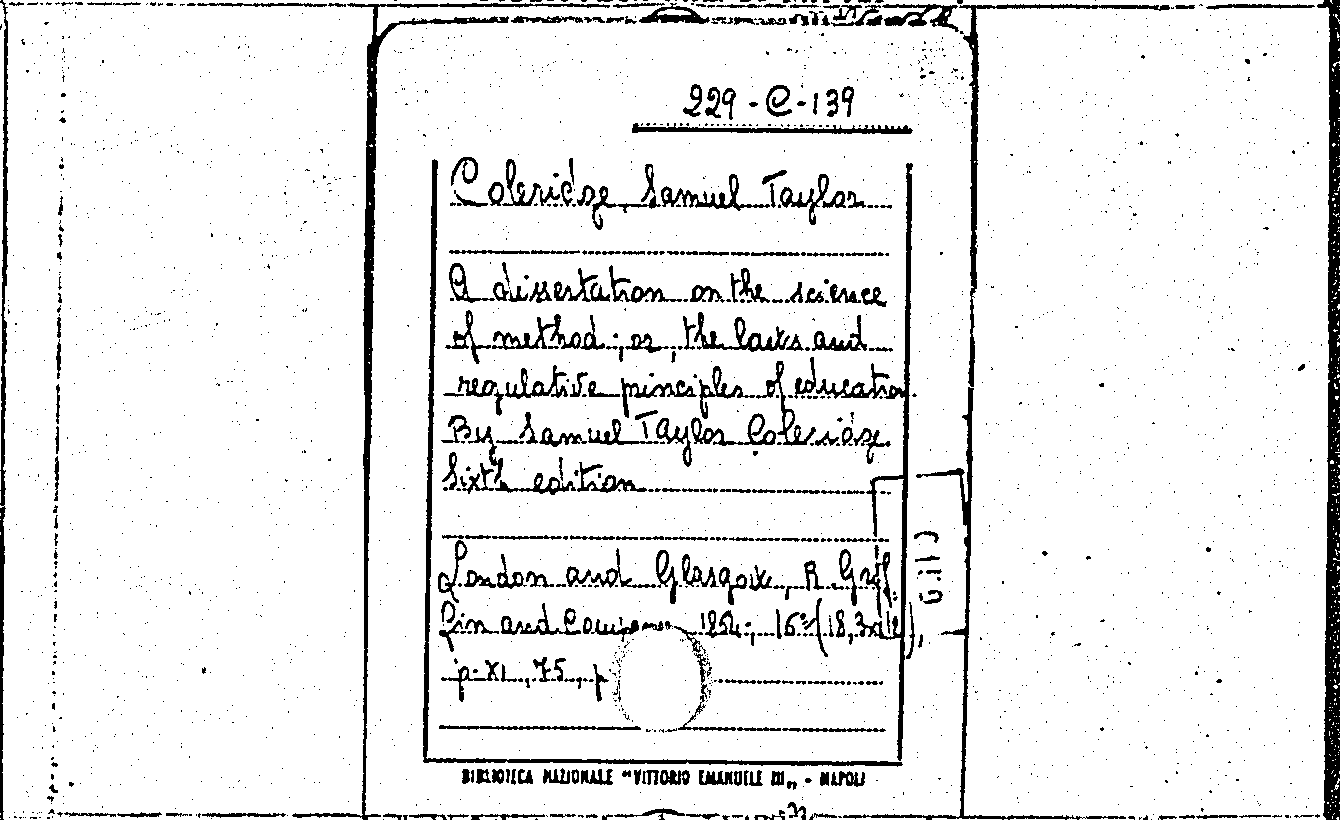 229-C-139
Coleridge, Samuel Taylor
A dissertation on the science
of method; or, the laws and
regulative principles of education.
By Samuel Taylor Coleridge.
Sixth edition
London and Glasgow, R. Grif.
fin and Company 1854; 16º (18,3x12),
p. XI, 75, p
BIBLIOTECA NAZIONALE "VITTORIO EMANUELE III„ - NAPOLI